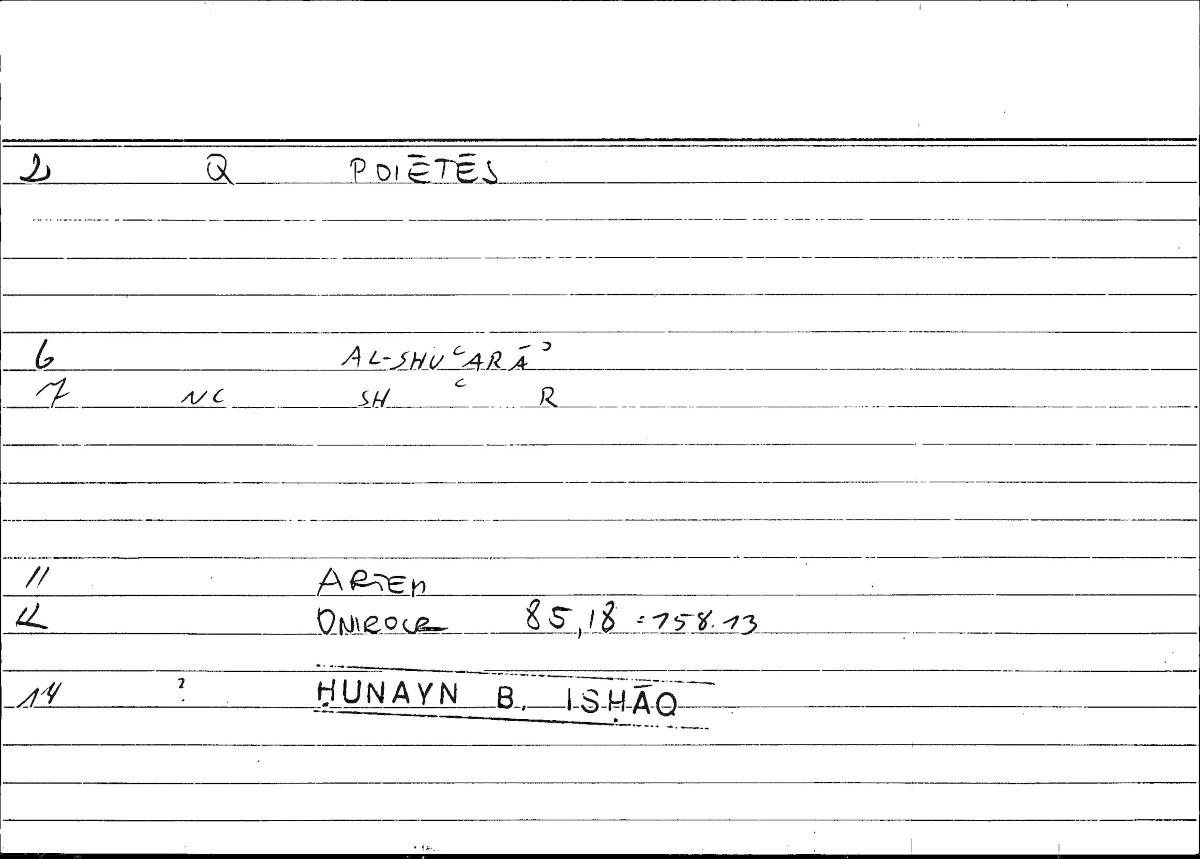 2 Q POIĒTĒS
6 AL-SHUʿARĀʾ
7 NC SH ʿ R
11 ARTEM
12 ONIROCR 85,18 = 158.13
14 ? ḤUNAYN B. ISḤĀQ